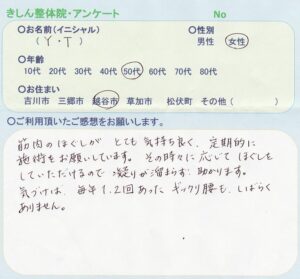 きしん整体院・アンケート No
○お名前(イニシャル) ○性別
( Y・T ) 男性 女性
○年齢
10代 20代 30代 40代 50代 60代 70代 80代
○お住まい
吉川市 三郷市 越谷市 草加市 松伏町 その他( )
○ご利用頂いたご感想をお願いします。
筋肉のほぐしが とても気持ち良く、定期的に
施術をお願いしています。その時々に応じてほぐしを
していただけるので 凝りが溜まらず 助かります。
気づけば、毎年1、2回あった ギックリ腰も、しばらく
ありません。